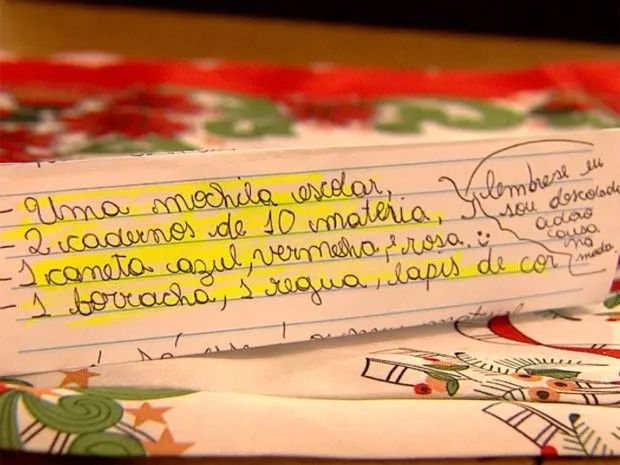 - Uma mochila escolar,
- 2 cadernos de 10 matéria,
- 1 caneta azul, vermelha, e rosa. :)
- 1 borracha, 1 regua, lapis de cor
lembrese eu
sou descolada
causa
na
moda